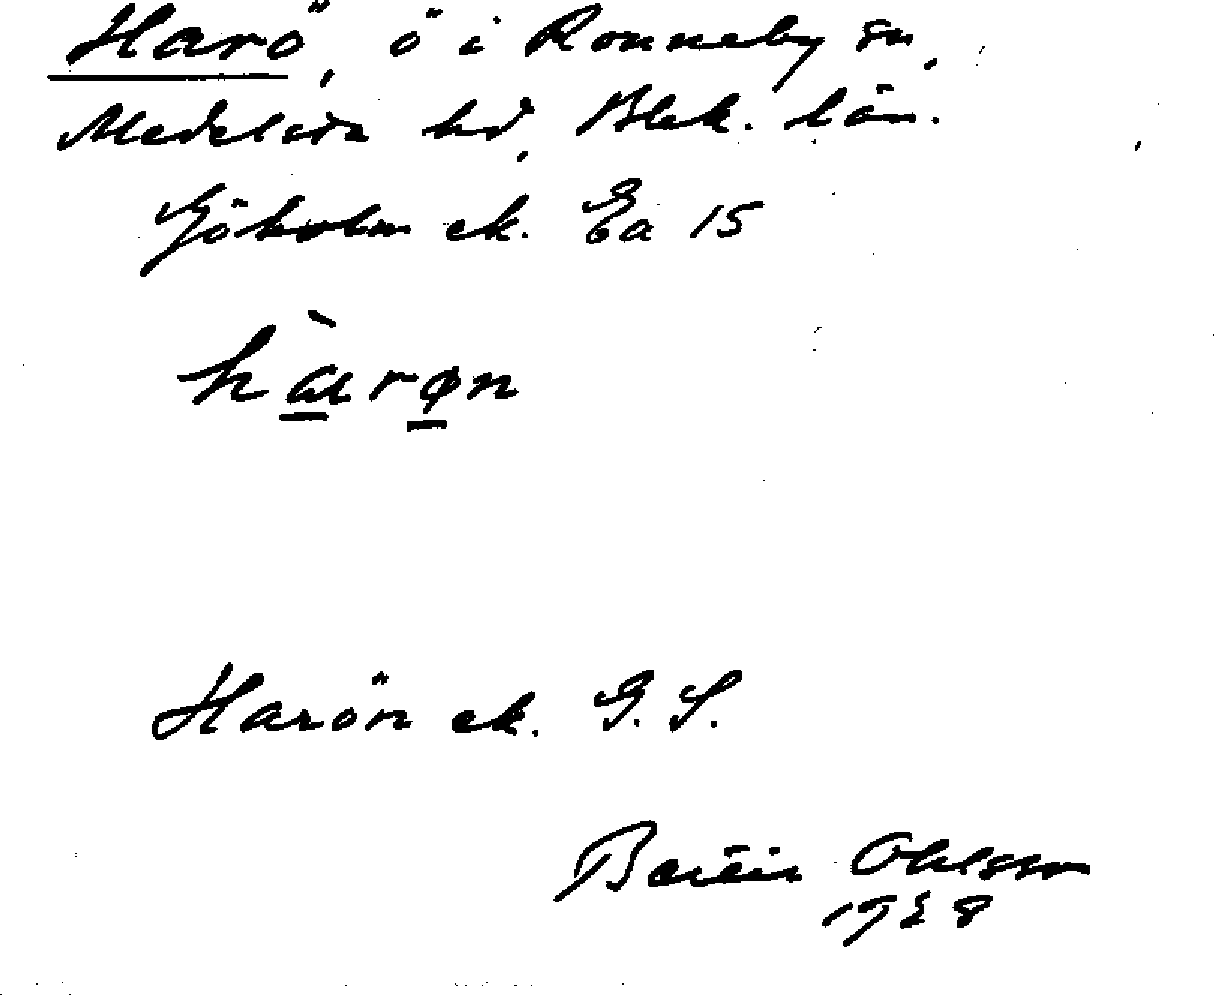 Harö, ö i Ronneby sn,
Medelsta hd, Blek. län.
Göholm ek. Ea 15
hàrøn
Harön ek. G. S.
Ohlsson
1928